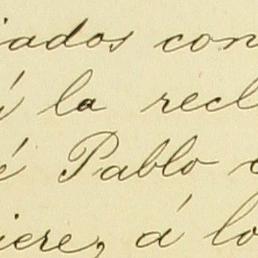 iados con
á la recl
é Pablo
iere, á lo